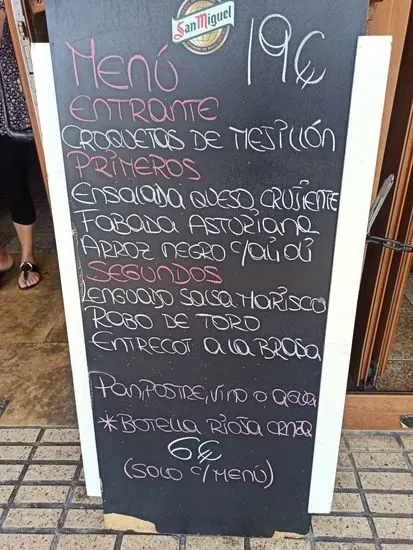 San Miguel
19€
MENÚ
ENTRANTE
CROQUETAS DE MEJILLÓN
PRIMEROS
ENSALADA QUESO CRUJIENTE
FABADA ASTURIANA
ARROZ NEGRO C/ALIOLI
SEGUNDOS
LENGUADO SALSA MARISCO
RABO DE TORO
ENTRECOT A LA BRASA
PAN, POSTRE, VINO O AGUA
*BOTELLA RIOJA CRNZA
6€
(SOLO C/MENÚ)